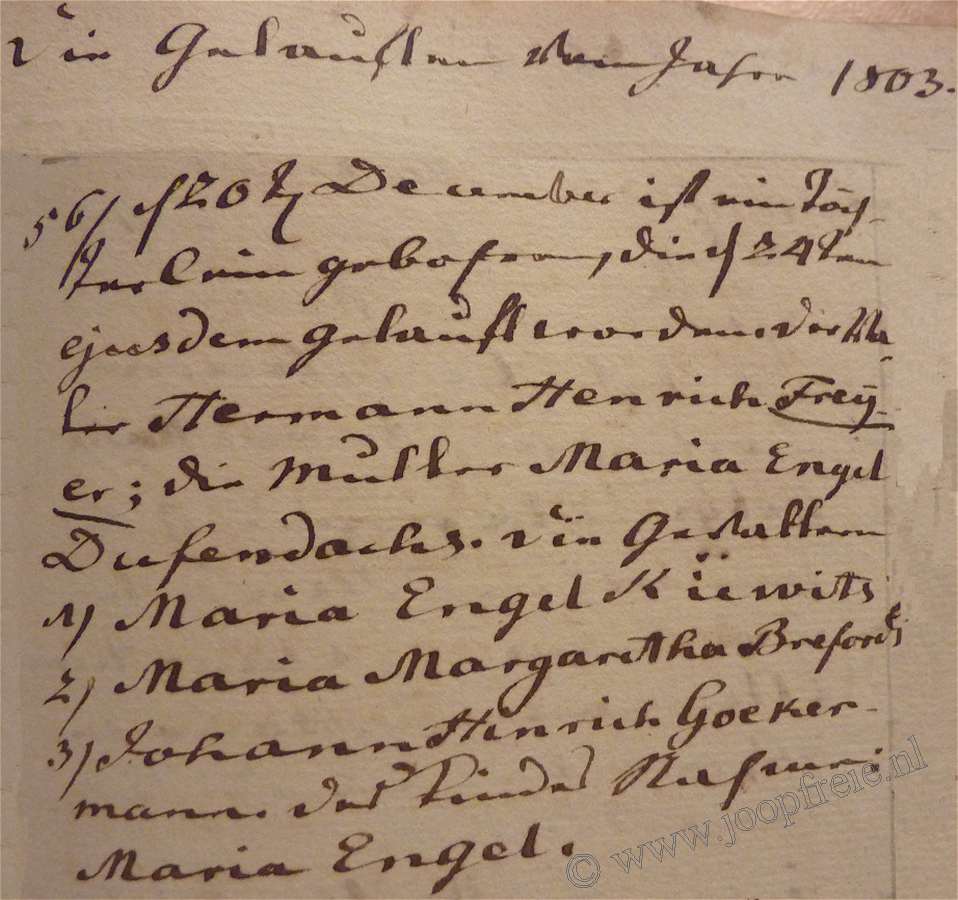 Die Getauften vom Jahre 1803.
56/ d 20t December ist ein Töch-
terlein gebohren, die d 24ten
ejusdem getauft worden. der Va-
ter Hermann Henrich Frey-
er; die Mutter Maria Engel
Dufendachs. Die Gevattern
1) Maria Engel Kiewits
2) Maria Margaretha Breford
3) Johann Henrich Goeker-
mann. des Kindes Nahme:
Maria Engel.
© www.joopfreie.nl